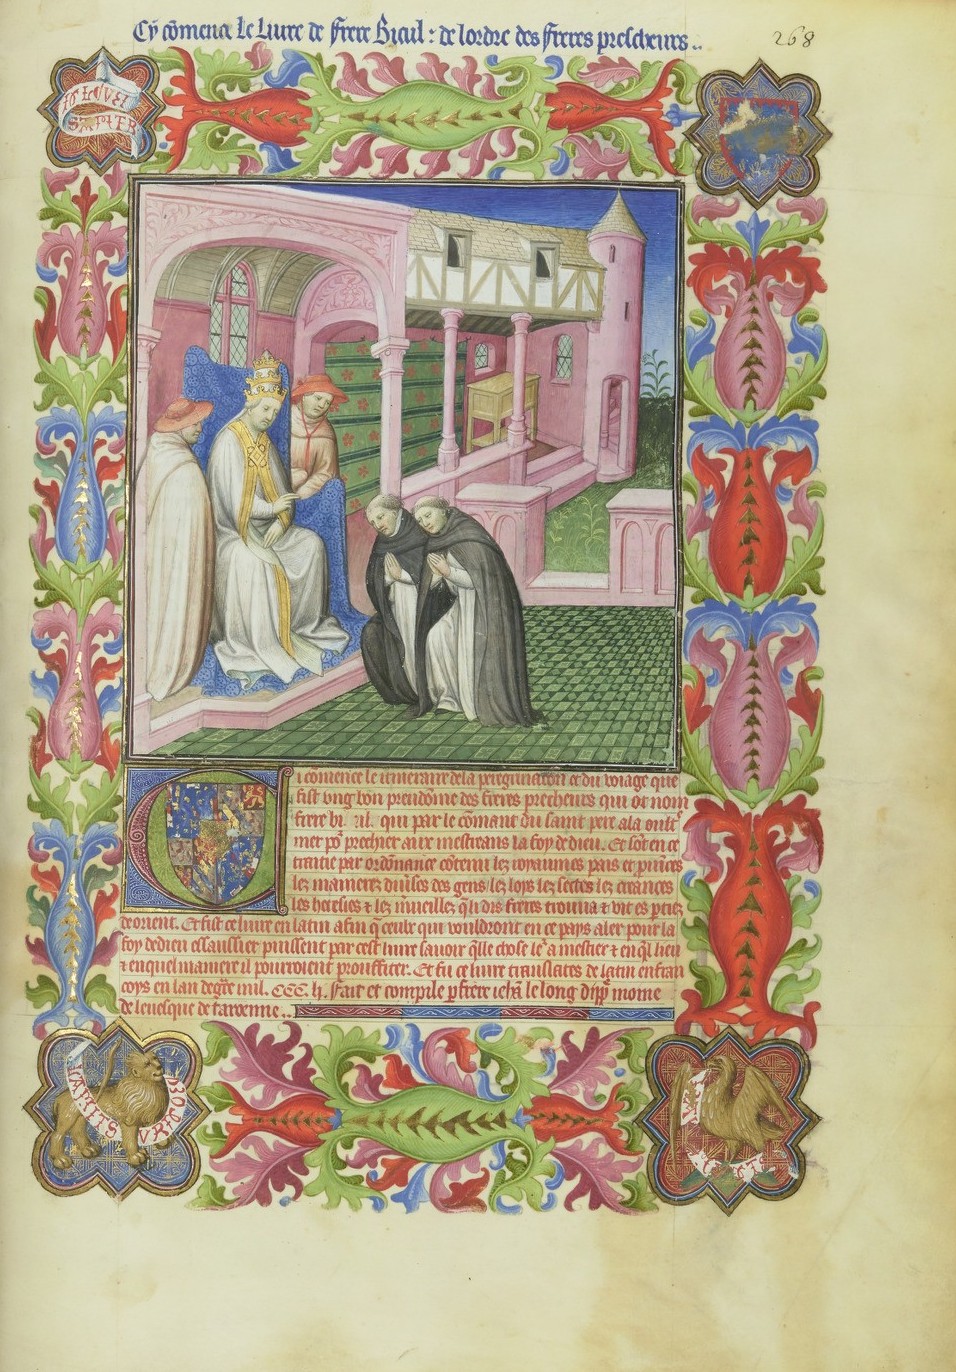 Cy cõmence le Liure de frere Bieul : de lordre des freres prescheurs ..
268
i cõmence le itineraire de la peregrinacion et du voiage que
fist vng bon preudõme des freres prescheurs qui ot nom
frere qui par le cõmant du saint pere ala
mer pͦ preschier aux mescreans la foy de dieu. Et sont en ce
traitie par ordonnance contenu les royaumes pais et prouinces
les manieres diuerses des gens les loys les sectes les creances
les heresies et les merueilles q̃ dis freres trouua es parties
dorient. Et fist ce liure en latin afin q̃ ceulx qui vouldront en ce pays aler pour la
foy de dieu essaussier puissent par cest liure sauoir q̃lle chose le a mestier et en q̃l lieu
et en quel maniere il pourroient prouffiter. Et fu ce liure translates de latin en fran
coys en lan de grace mil. CCC. li. Fait et compile p frere iehã le long dipp̃ moine
de leuesque de tarouenne ..